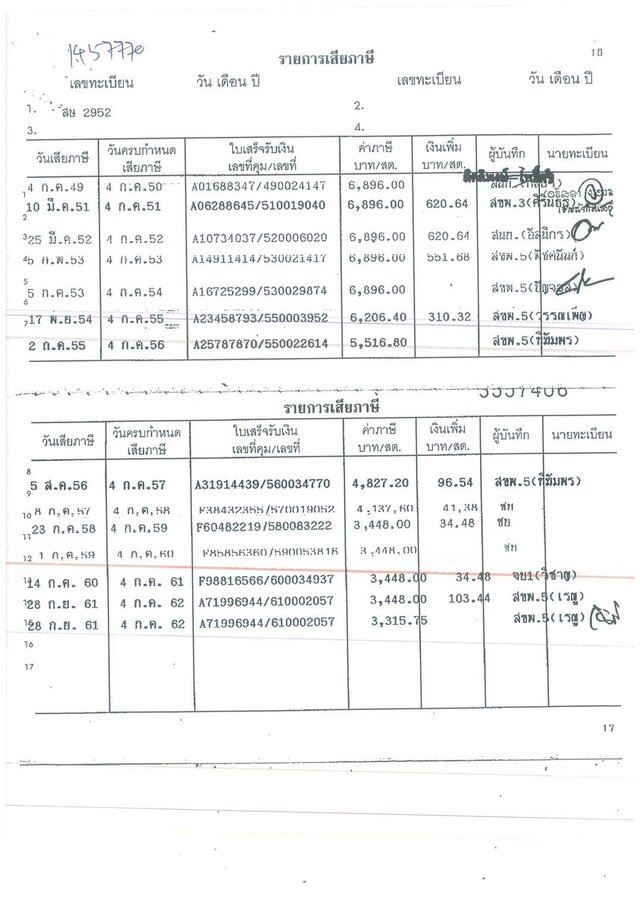 1457770
16
รายการเสียภาษี
เลขทะเบียน วัน เดือน ปี เลขทะเบียน วัน เดือน ปี
1. สษ 2952 2.
3. 4.
วันเสียภาษี วันครบกำหนดเสียภาษี ใบเสร็จรับเงิน เลขที่คุม/เลขที่ ค่าภาษี บาท/สต. เงินเพิ่ม บาท/สต. ผู้บันทึก นายทะเบียน
1 4 ก.ค.49 4 ก.ค.50 A01688347/490024147 6,896.00
10 มี.ค.51 4 ก.ค.51 A06288645/510019040 6,896.00 620.64 สขพ.3(ศิรินธร)
2
3 25 มี.ค.52 4 ก.ค.52 A10734037/520006020 6,896.00 620.64 สนก.
4 5 ก.พ.53 4 ก.ค.53 A14911414/530021417 6,896.00 551.68 สขพ.5
5
5 ก.ค.53 4 ก.ค.54 A16725299/530029874 6,896.00 สขพ.5
6
7 17 พ.ย.54 4 ก.ค.55 A23458793/550003952 6,206.40 310.32 สขพ.5(วรรณเพ็ญ)
2 ก.ค.55 4 ก.ค.56 A25787870/550022614 5,516.80 สขพ.5(ทิมัมพร)
3357406
รายการเสียภาษี
วันเสียภาษี วันครบกำหนดเสียภาษี ใบเสร็จรับเงิน เลขที่คุม/เลขที่ ค่าภาษี บาท/สต. เงินเพิ่ม บาท/สต. ผู้บันทึก นายทะเบียน
8
5 ส.ค.56 4 ก.ค.57 A31914439/560034770 4,827.20 96.54 สขพ.5(ทิมัมพร)
9
10 8 ก.ค.57 4 ก.ค.58 F38432355/570019052 4,137.60 41.38 ชย
23 ก.ค.58 4 ก.ค.59 F60482219/580083222 3,448.00 34.48 ชย
11
12 1 ก.ค.59 4 ก.ค.60 F85856360/590053816 3,448.00 ชย
14 ก.ค. 60 4 ก.ค. 61 F98816566/600034937 3,448.00 34.48 จย1(วิชาญ)
28 ก.ย. 61 4 ก.ค. 62 A71996944/610002057 3,448.00 103.44 สขพ.5(เรณู)
28 ก.ย. 61 4 ก.ค. 62 A71996944/610002057 3,315.75 สขพ.5(เรณู)
16
17
17